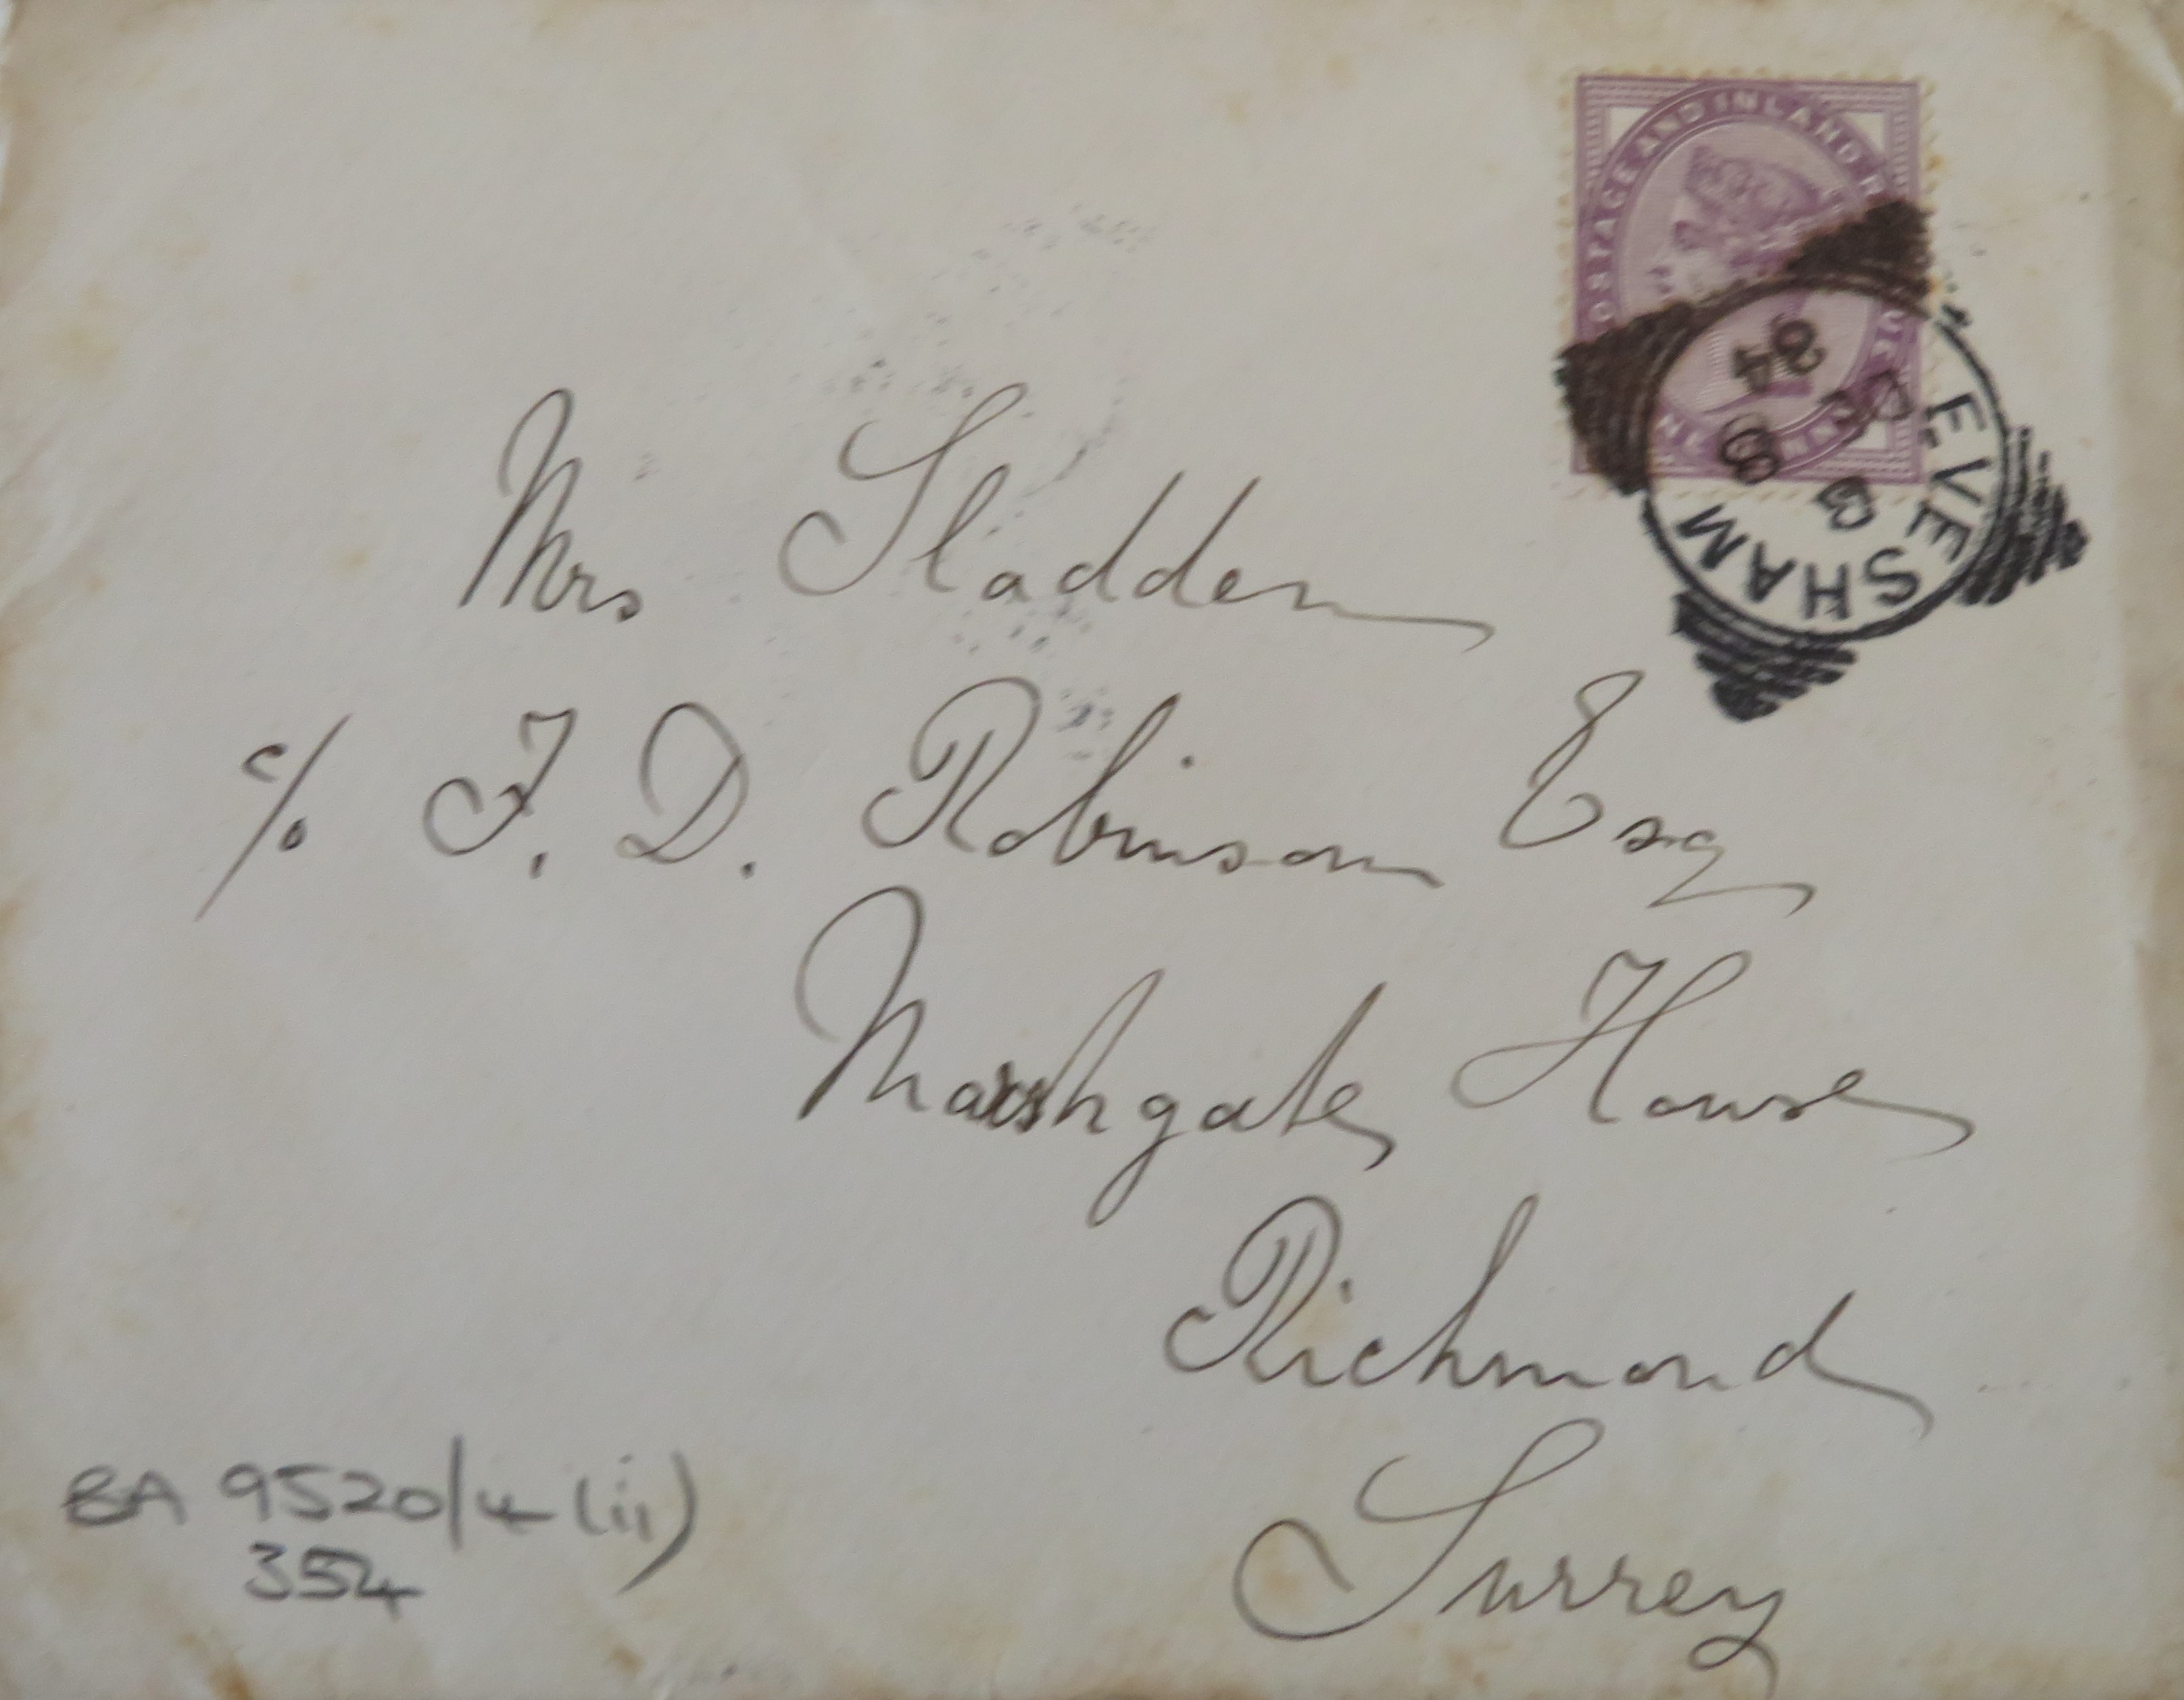 POSTAGE AND INLAND
EVESHAM
G
94
Mrs Sladden
c/o F. D. Robinson Esq
Marshgate House
Richmond
Surrey
BA 9520/4 (ii)
354